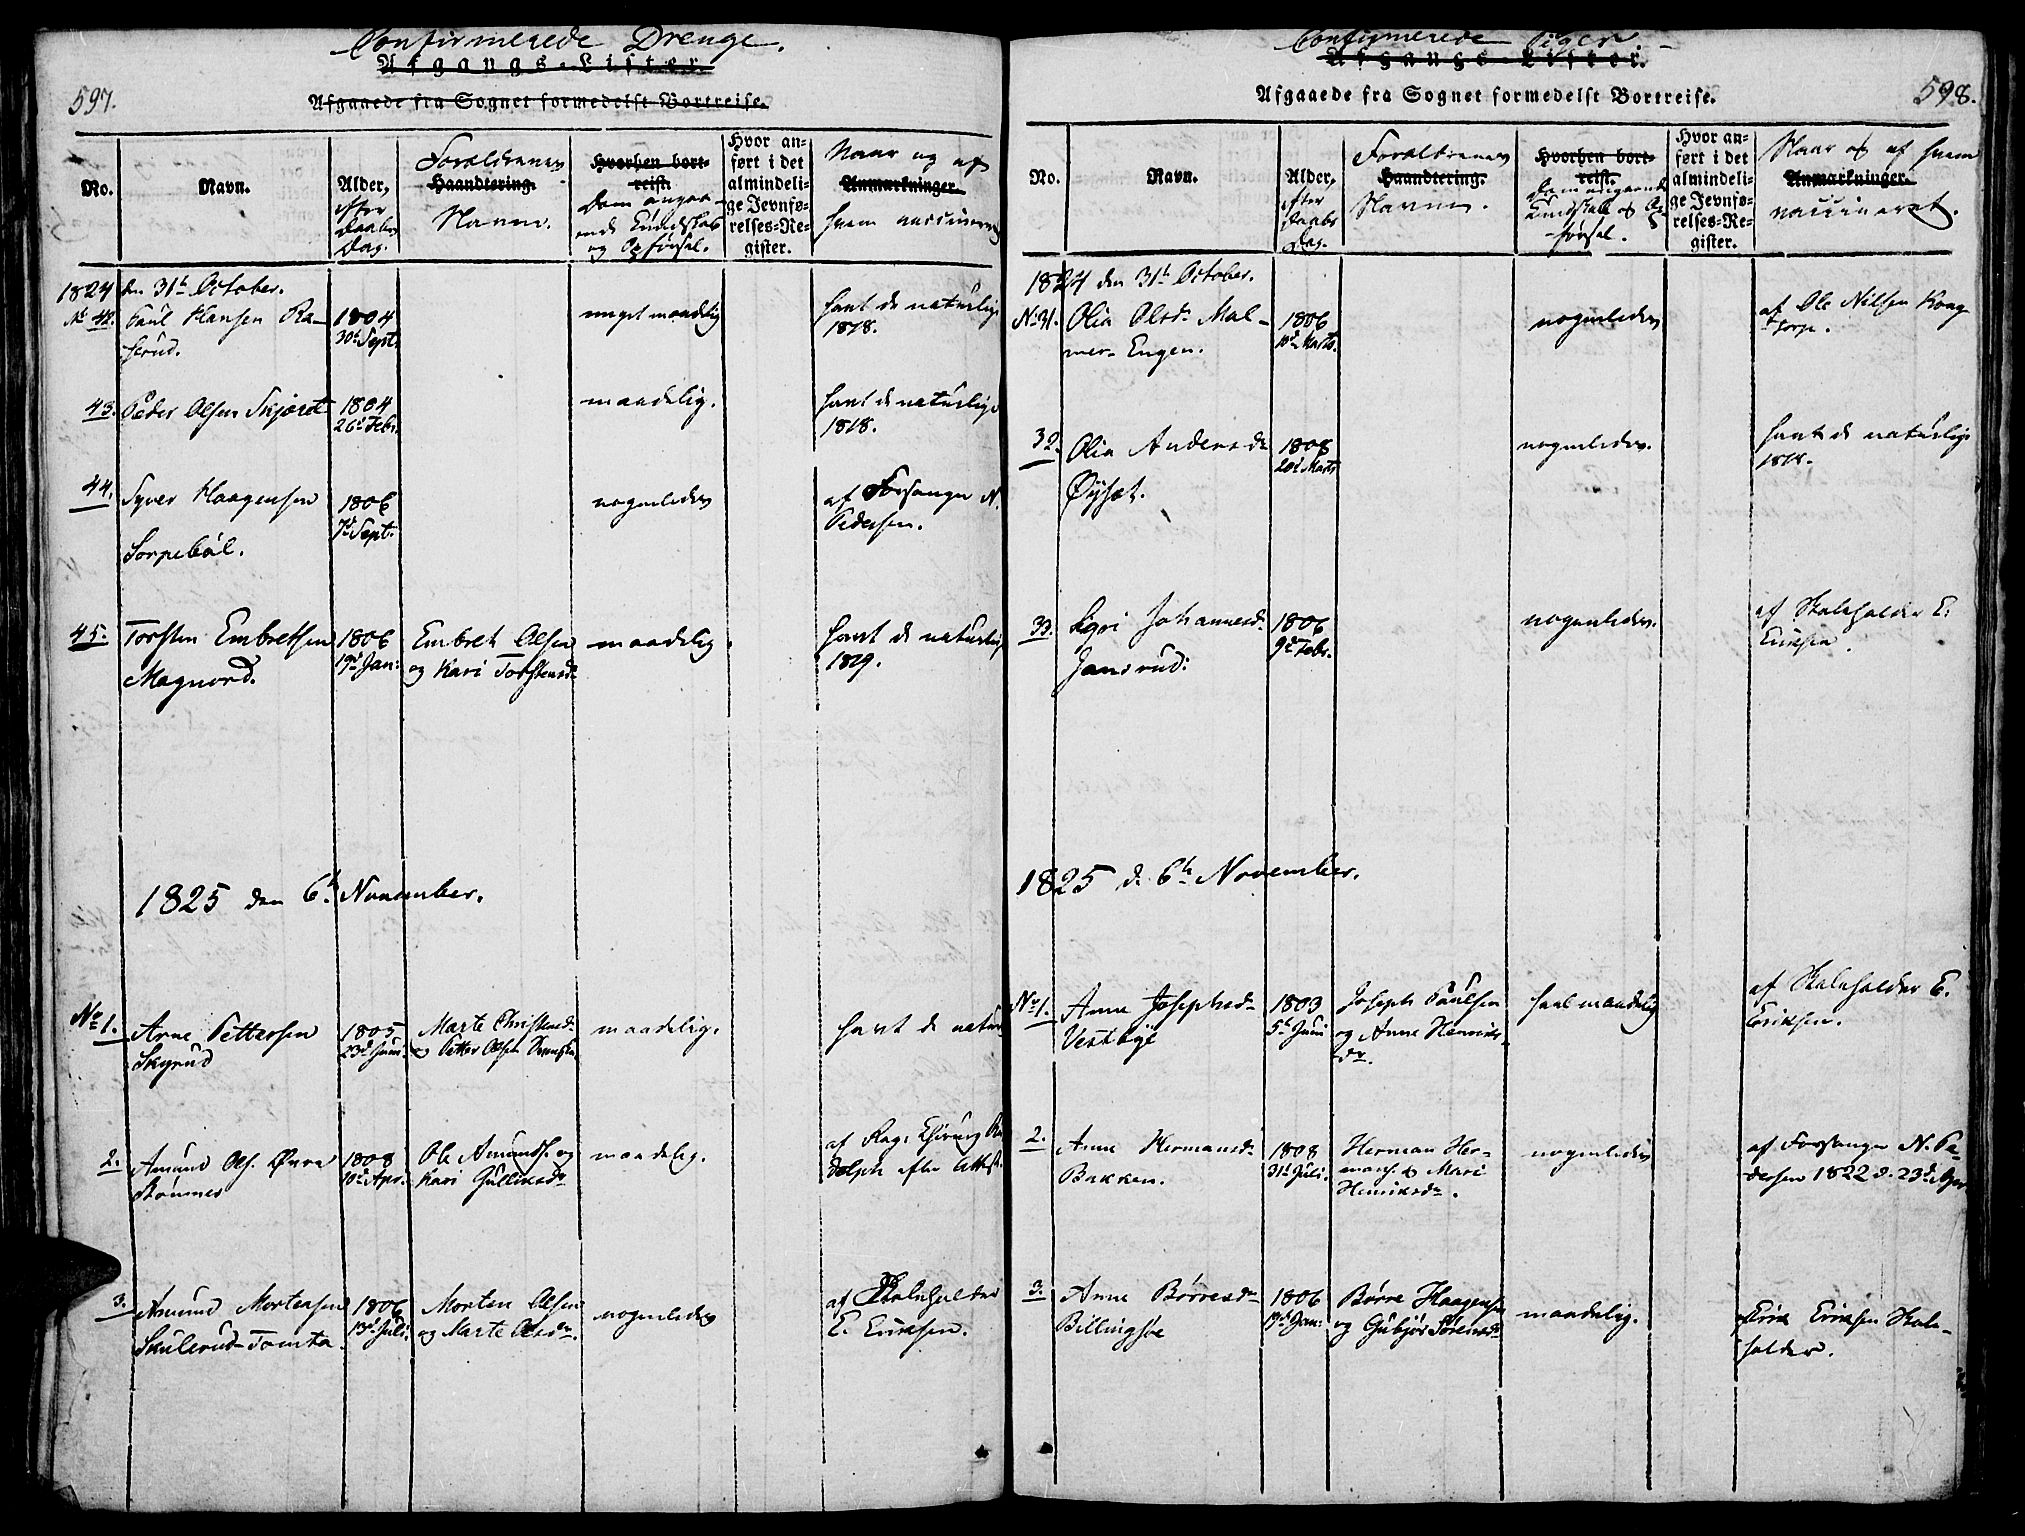 Confirmerede Drenge.
Afgangs-Lister.
597.
Afgaaede fra Sognet formedelst Bortreise.
No.
Navn.
Alder,
efter
Daabs
Dag.
Forældrenes
Haandtering.
Navne.
Hvorhen bort-
reist.
Dom angaa-
ende Kundskab
og Opførsel.
Hvor an-
ført i det
almindeli-
ge Jevnfø-
relses-Re-
gister.
Naar og af
Anmærkninger.
hvem vaccineret
1824 den 31te October.
No 42. Poul Hansen Ra-
serud.
1804
30te Sept.
meget maadelig
havt de naturlige
1818.
43. Peder Olsen
1804
26de Febr.
maadelig.
havt de naturlige
1818.
44. Syver Haagensen
Sorpebøl.
1806
7de Sept.
nogenledes
af Forsanger N.
Pedersen.
45. Torsten Embretsen
Magnord.
1806
19de Jan:
Embret Olsen
og Kari Torstensdr
maadelig.
havt de naturlig
1819.
1825 den 6te November.
No 1. Arne Pettersen
Skyrud
1805
23de Juni
Marte Christensdr
og Petter Olsen
maadelig.
havt de natur
2. Amund Ols. Øvre
1808
10de Apr.
Ole Amunds. og
Kari Gulliksdr
maadelig.
af Reg: Chirurg Ru
dolph efter Attest.
3. Amund Mortensen
Skulerud-Tomta.
1806
13de Juli
Morten Olsen
og Marte Olsdr.
nogenledes
af Skoleholder
E. Eriksen.
Confirmerede Piger.
Afgangs-Lister.
598.
Afgaaede fra Sognet formedelst Bortreise.
No.
Navn.
Alder,
efter
Daabs
Dag.
Forældrenes
Haandtering.
Navne.
Hvorhen bort-
reist.
Dom angaaende
Kundskab og Op-
førsel.
Hvor an-
ført i det
almindeli-
ge Jevnfø-
relses-Re-
gister.
Naar og af hvem
Anmærkninger.
vaccineret.
1824 den 31te October.
No 31. Olia Olsdr. Mal-
mer-Engen.
1806
Marts.
nogenledes
af Ole Nilsen Kong
torp.
32. Olia Andersdr
Øysæt.
1808
20de Marts
nogenledes.
havt de naturlig
1818.
33. Sigri Johannesdr
Jansrud:
1806
9de Febr.
nogenledes.
af Skoleholder E.
Eriksen.
1825 d. 6te November.
No 1. Anne Josephsdr
Vestbye
1803
5te Juni
Joseph Poulsen
og Anne Henriks-
dr.
saal maadelig
af Skoleholder E.
Eriksen.
2. Anne Hermansdr
Bakken.
1808
31te Juli.
Herman Her-
mans. og Mari
Henriksdr.
nogenledes
af Forsanger N. Pe-
dersen 1822 d. 23de Apr
3. Anne Børresdr
Billingsøe
1806
Jan:
Børre Haagensen
og Gubjør Sørensdr
maadelig.
Erik Eriksen Skole-
holder.